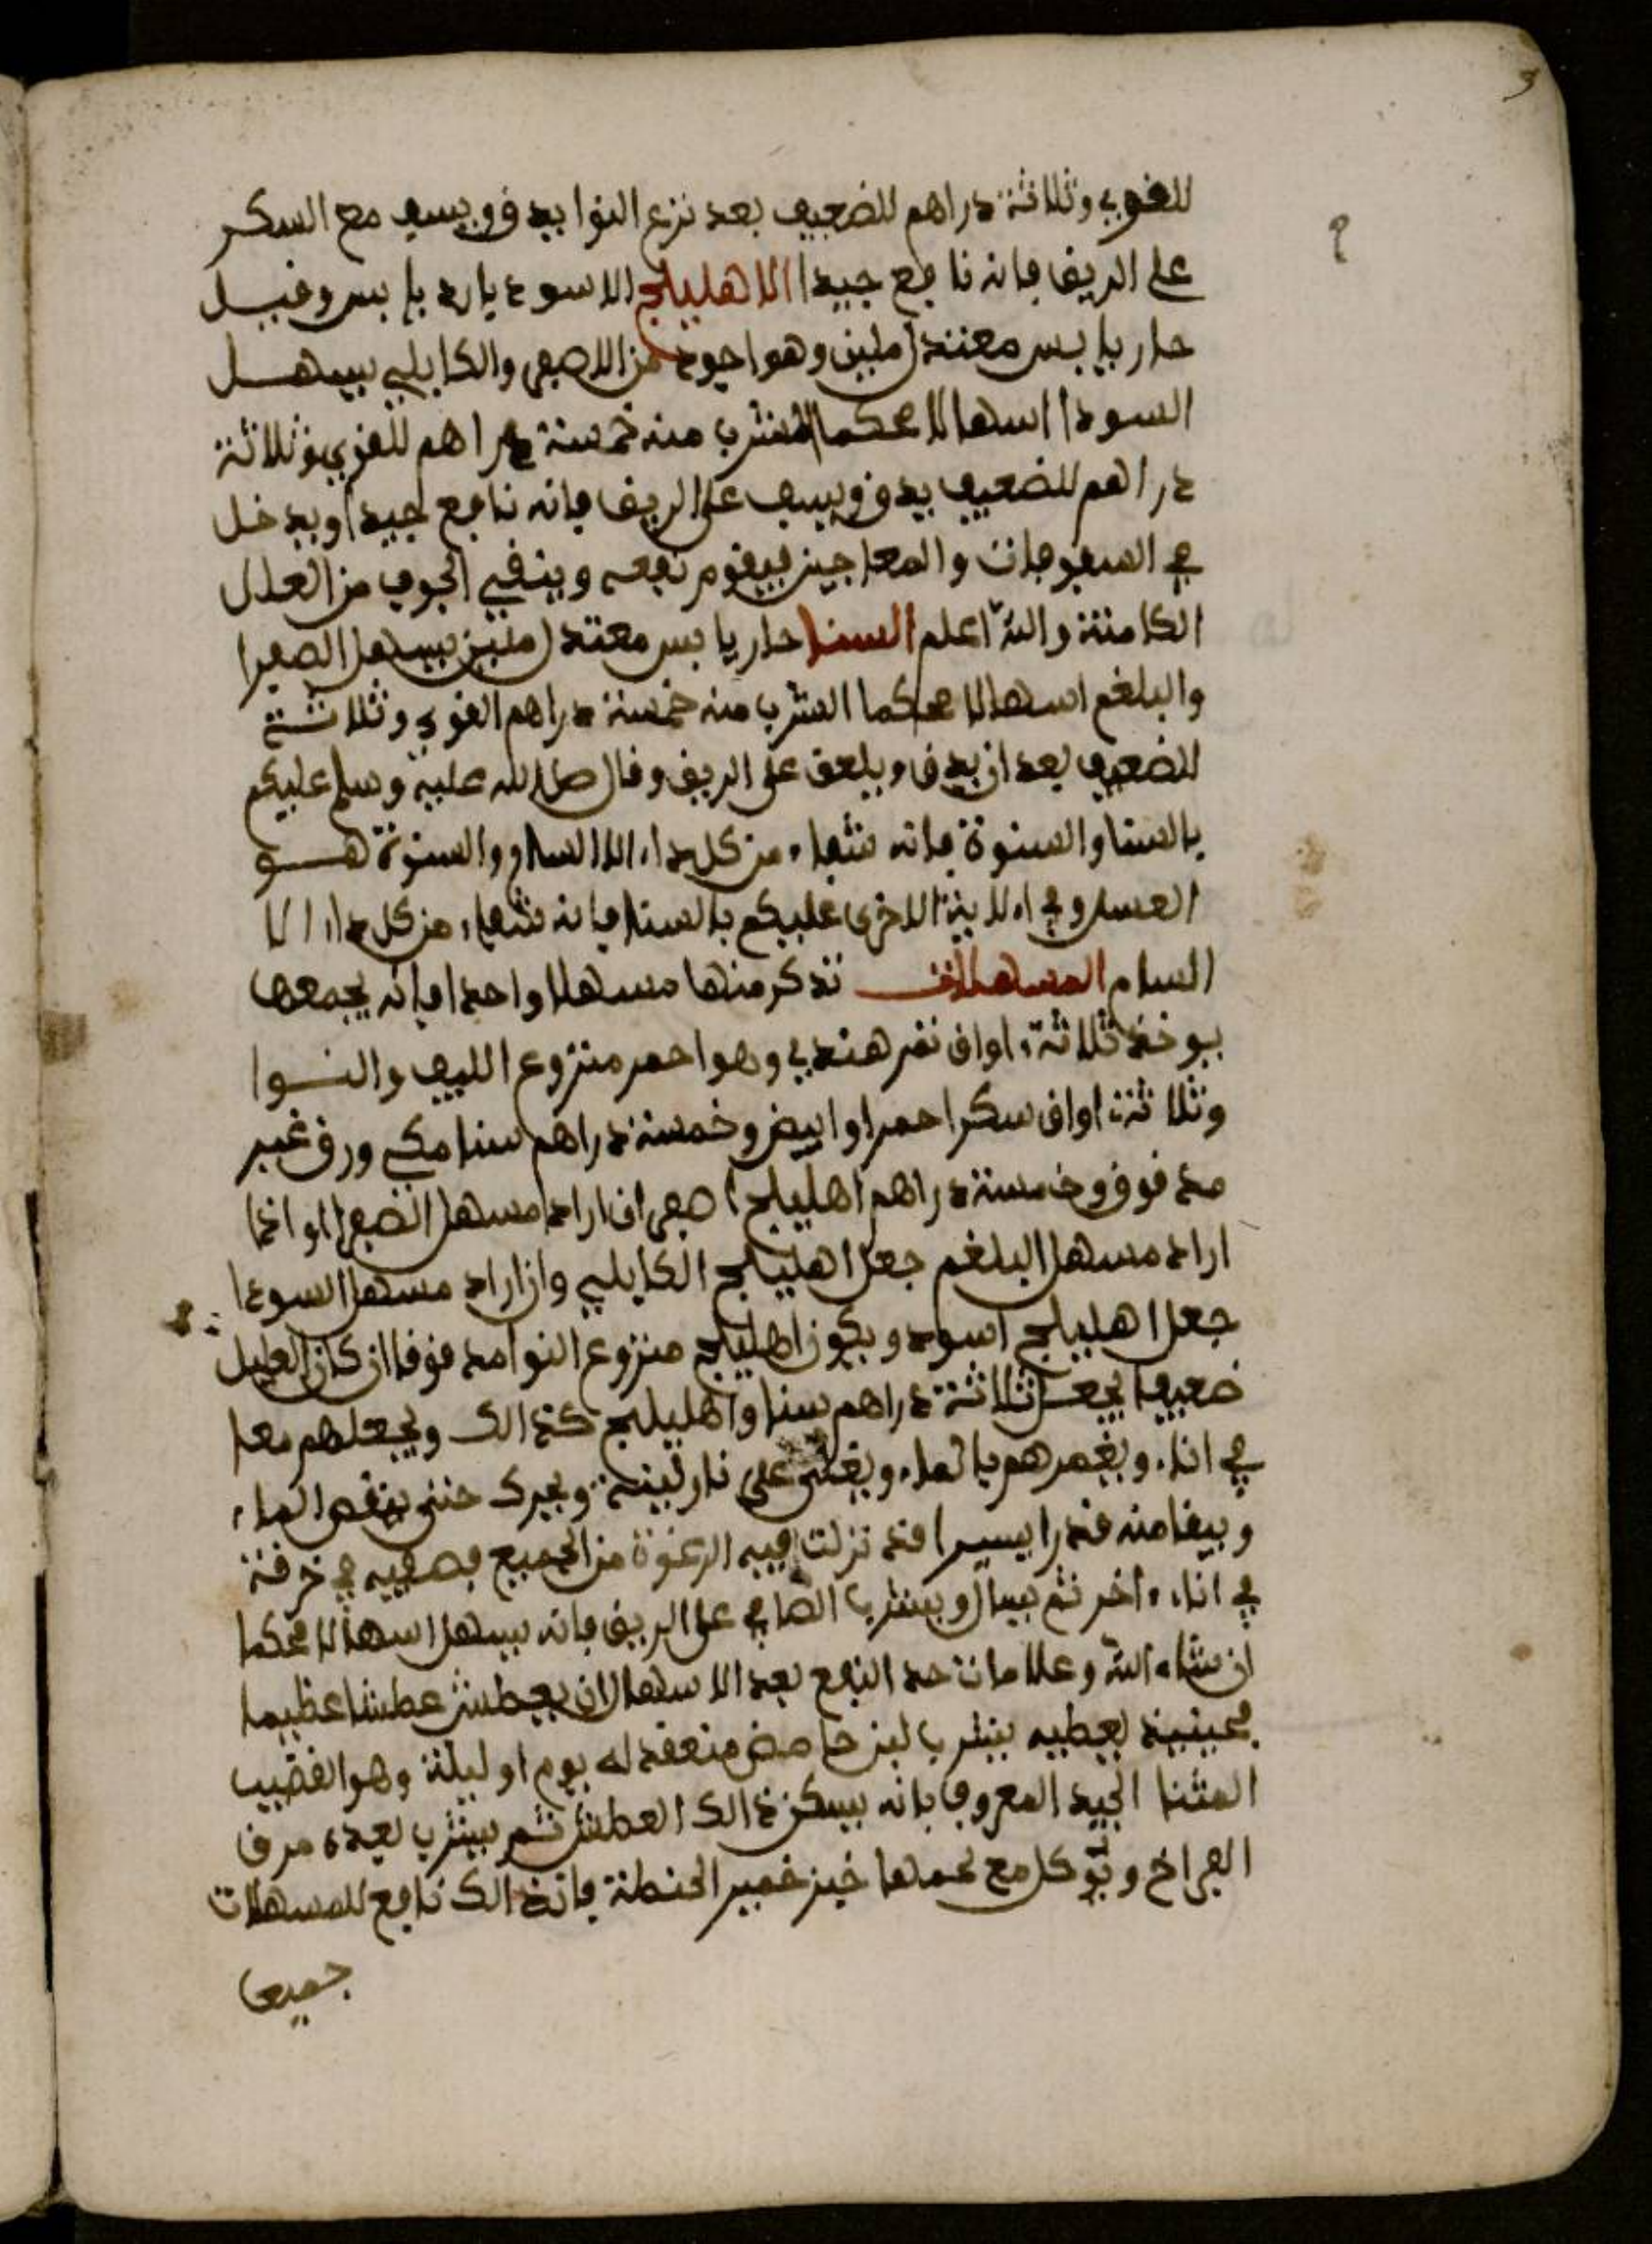 3
للقوي وثلاثة دراهم للضعيف بعد نزع النوا يدق ويسف مع السكر
على الريق فانه نافع جيدا الاهليلج الاسود بارد يابس وقيل
حار يابس معتدل ملين وهو اجود من الاصفر والكابلي يسهل
السودا اسهالا محكما الشرب منه خمسة دراهم للقوي وثلاثة
دراهم للضعيف يدق ويسف على الريق فانه نافع جيدا ويدخل
في السفوفات والمعاجين فيقوم نفعه وينقي الجوف من العلل
الكامنة والله اعلم السنا حار يابس معتدل ملين يسهل الصفرا
والبلغم اسهالا محكما الشرب منه خمسة دراهم القوي وثلاثة
للضعيف بعد ان يدق ويلعق على الريق وقال صلى الله عليه وسلم عليكم
بالسنا والسنوة فانه شفاء من كل داء الا السام والسنوة هو
العسل وفي الاخرى عليكم بالسنا فانه شفاء من كل داء الا
السام المسهلات نذكر منها مسهلا واحدا فانه يجمعها
يوخذ ثلاثة اواق تمر هندي وهو احمر منزوع الليف والنوا
وثلاثة اواق سكر احمر او ابيض وخمسة دراهم سنا مكي ورق غير
مدقوق وخمسة دراهم اهليلج اصفر ان اراد مسهل الصفرا او اذا
اراد مسهل البلغم جعل اهليلج الكابلي وان اراد مسهل السودا
جعل اهليلج اسود ويكون اهليلج منزوع النوا مدقوقا ان كان العليل
ضعيفا يجعل ثلاثة دراهم سنا واهليلج كذالك ويجعلهم معا
في اناء ويغمرهم بالماء ويغلى على نار لينة ويحرك حتى ينقص الماء
ويبقا منه قدرا يسيرا قد نزلت فيه الرغوة من الجميع فصفيه في خرقة
في اناء اخر ثم يسال ويشرب الصافي على الريق فانه يسهل اسهالا محكما
ان شاء الله وعلامات حد النفع بعد الاسهال ان يعطش عطشا عظيما
فحينيذ يعطيه يشرب لبن حامض منعقد له يوم او ليلة وهو القضيب
المثنا الجيد المعروف بانه يسكن ذالك العطش ثم يشرب بعده مرق
الفراخ ويوكل مع لحمها خبز خمير الحنطة فان ذالك نافع للمسهلات
جميعا